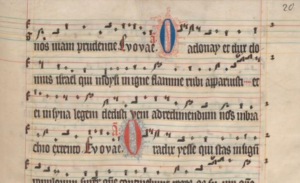 20
nos uiam prudencie Euouae O adonay et dux do
mus israel qui moysi in igne flamme rubi apparuisti et
ei in syna legem dedisti ueni ad redimendum nos in bra
chio extento Euouae O radix yesse qui stas in signu
populorum super quem